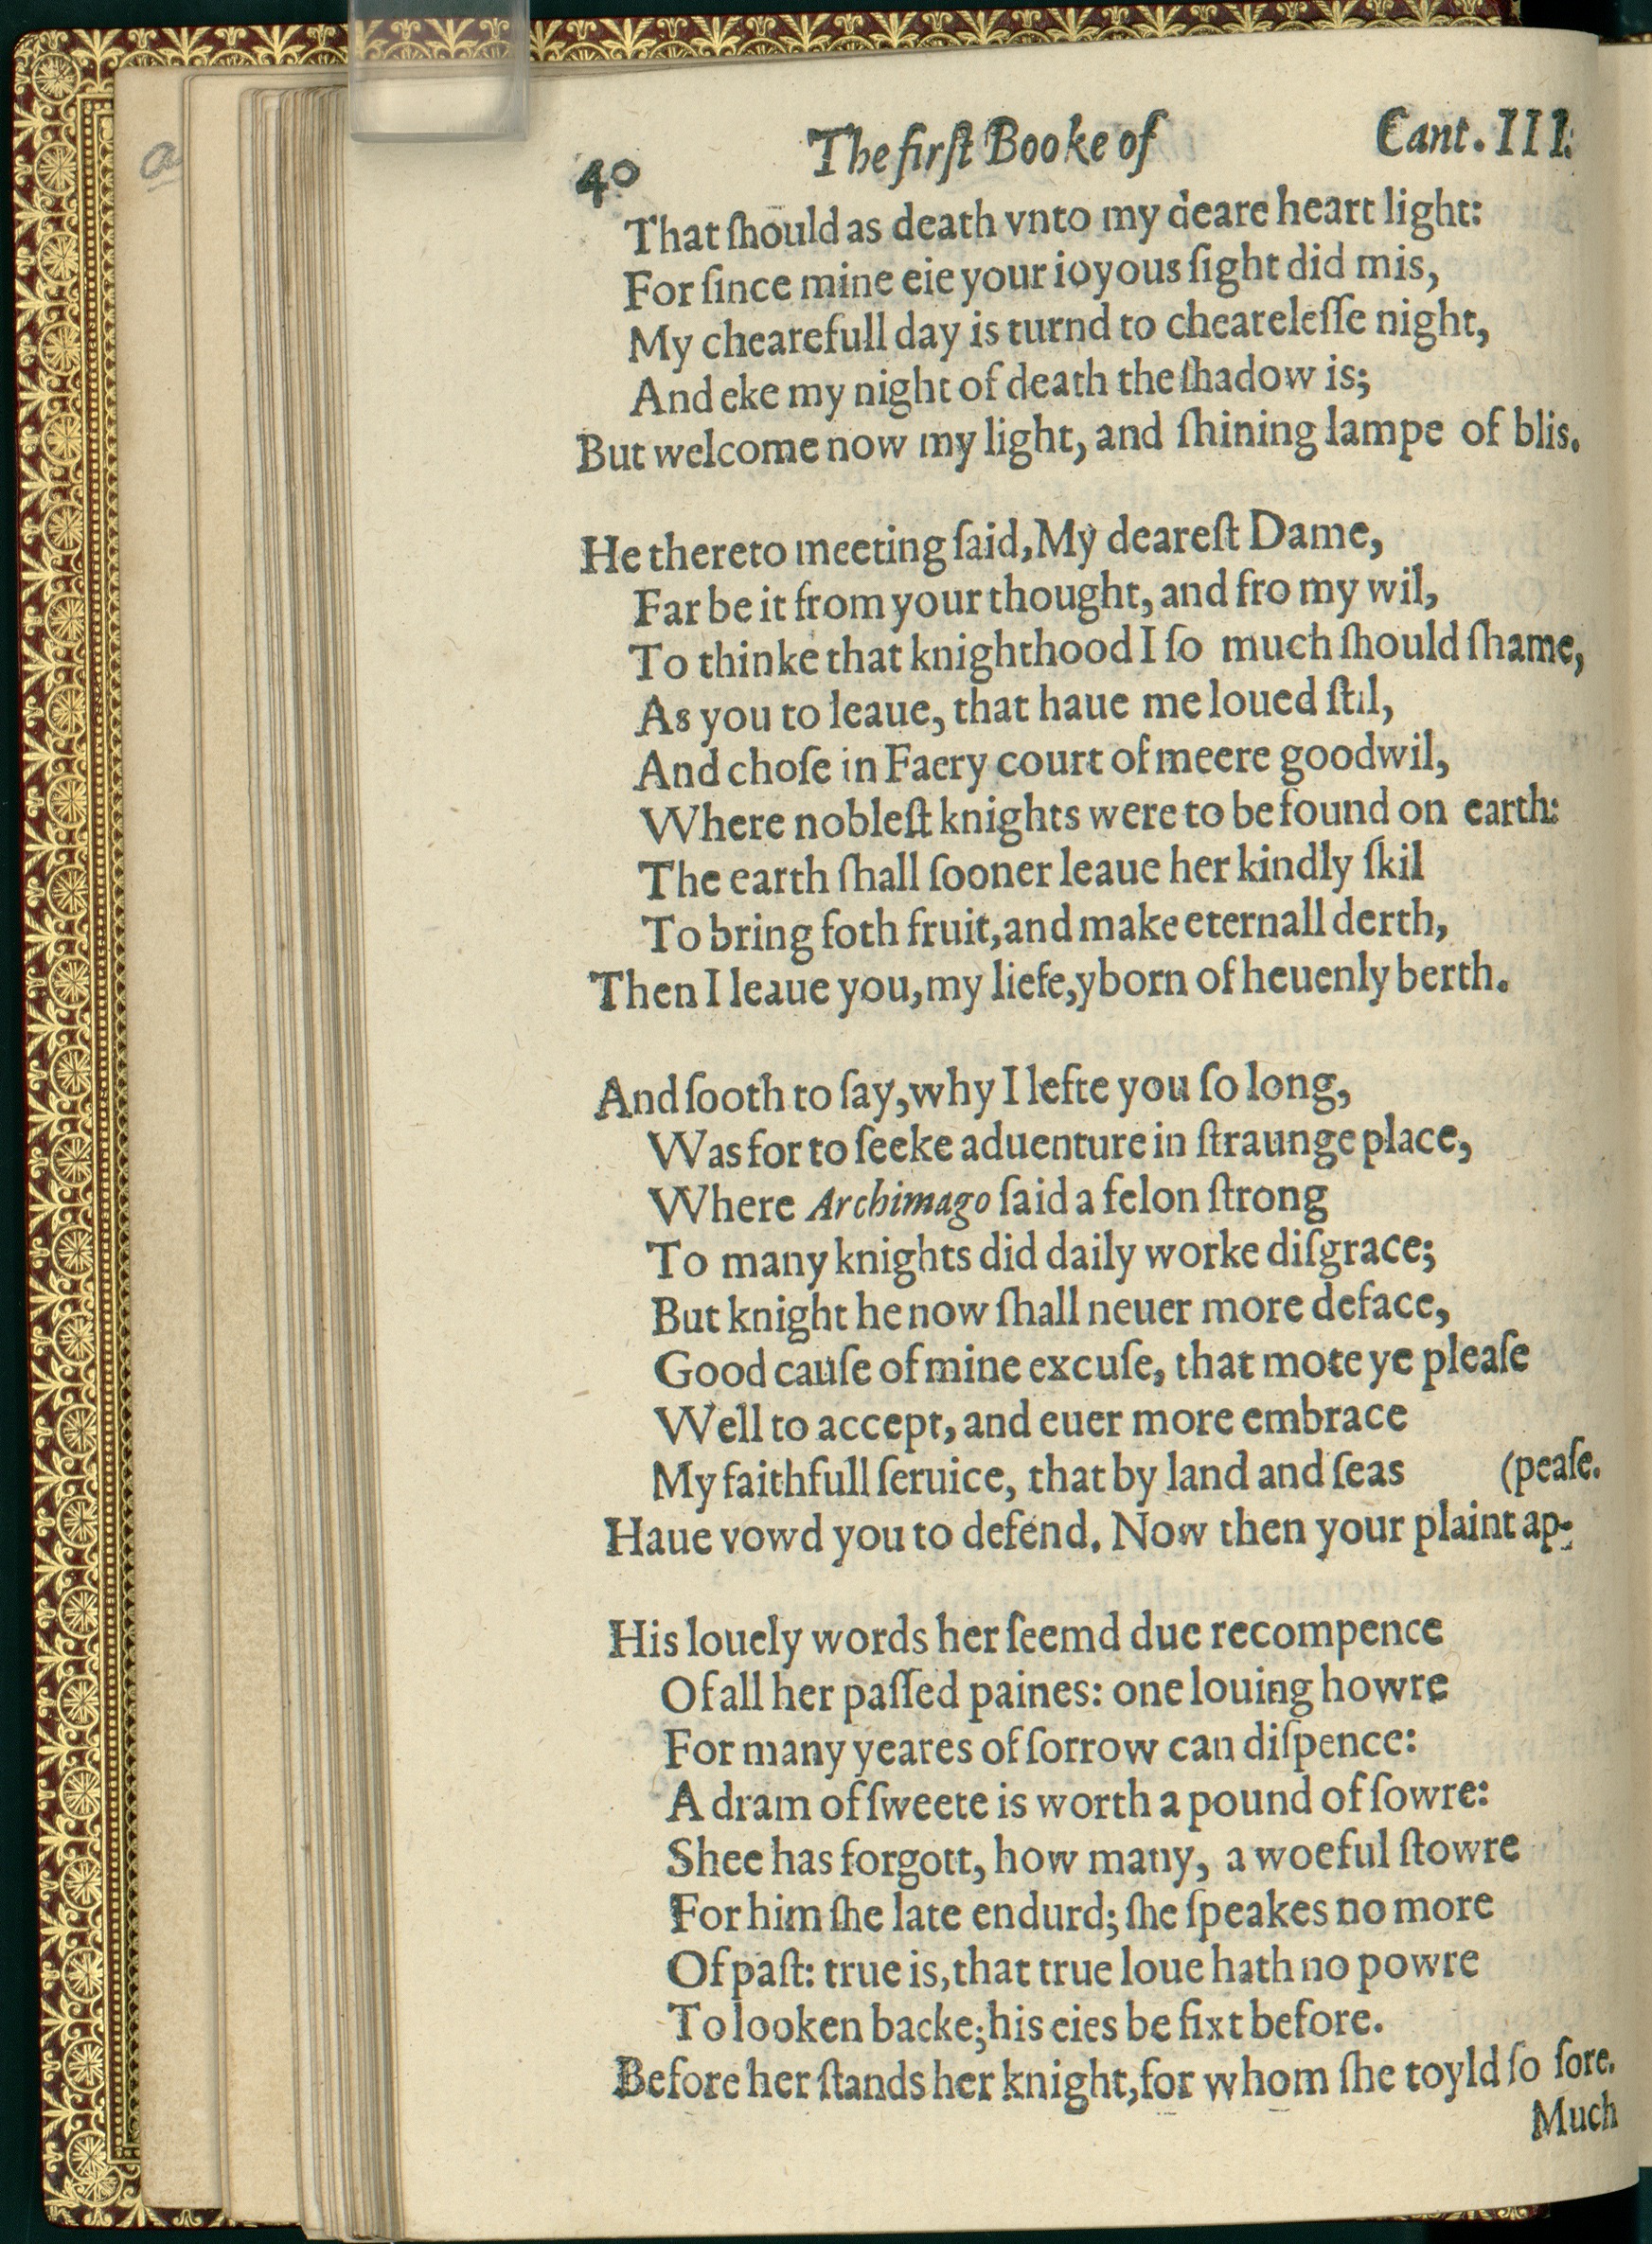 a
40 The firſt Booke of Cant. III.
That ſhould as death vnto my deare heart light:
For ſince mine eie your ioyous ſight did mis,
My chearefull day is turnd to cheareleſſe night,
And eke my night of death the ſhadow is;
But welcome now my light, and ſhining lampe of blis.
He thereto meeting ſaid, My deareſt Dame,
Far be it from your thought, and fro my wil,
To thinke that knighthood I ſo much ſhould ſhame,
As you to leaue, that haue me loued ſtil,
And choſe in Faery court of meere goodwil,
Where nobleſt knights were to be found on earth:
The earth ſhall ſooner leaue her kindly ſkil
To bring foth fruit, and make eternall derth,
Then I leaue you, my liefe, yborn of heuenly berth.
And ſooth to ſay, why I lefte you ſo long,
Was for to ſeeke aduenture in ſtraunge place,
Where Archimago ſaid a felon ſtrong
To many knights did daily worke diſgrace;
But knight he now ſhall neuer more deface,
Good cauſe of mine excuſe, that mote ye pleaſe
Well to accept, and euer more embrace
My faithfull ſeruice, that by land and ſeas (peaſe.
Haue vowd you to defend. Now then your plaint ap-
His louely words her ſeemd due recompence
Of all her paſſed paines: one louing howre
For many yeares of ſorrow can diſpence:
A dram of ſweete is worth a pound of ſowre:
Shee has forgott, how many, a woeful ſtowre
For him ſhe late endurd; ſhe ſpeakes no more
Of paſt: true is, that true loue hath no powre
To looken backe; his eies be fixt before.
Before her ſtands her knight, for whom ſhe toyld ſo ſore.
Much